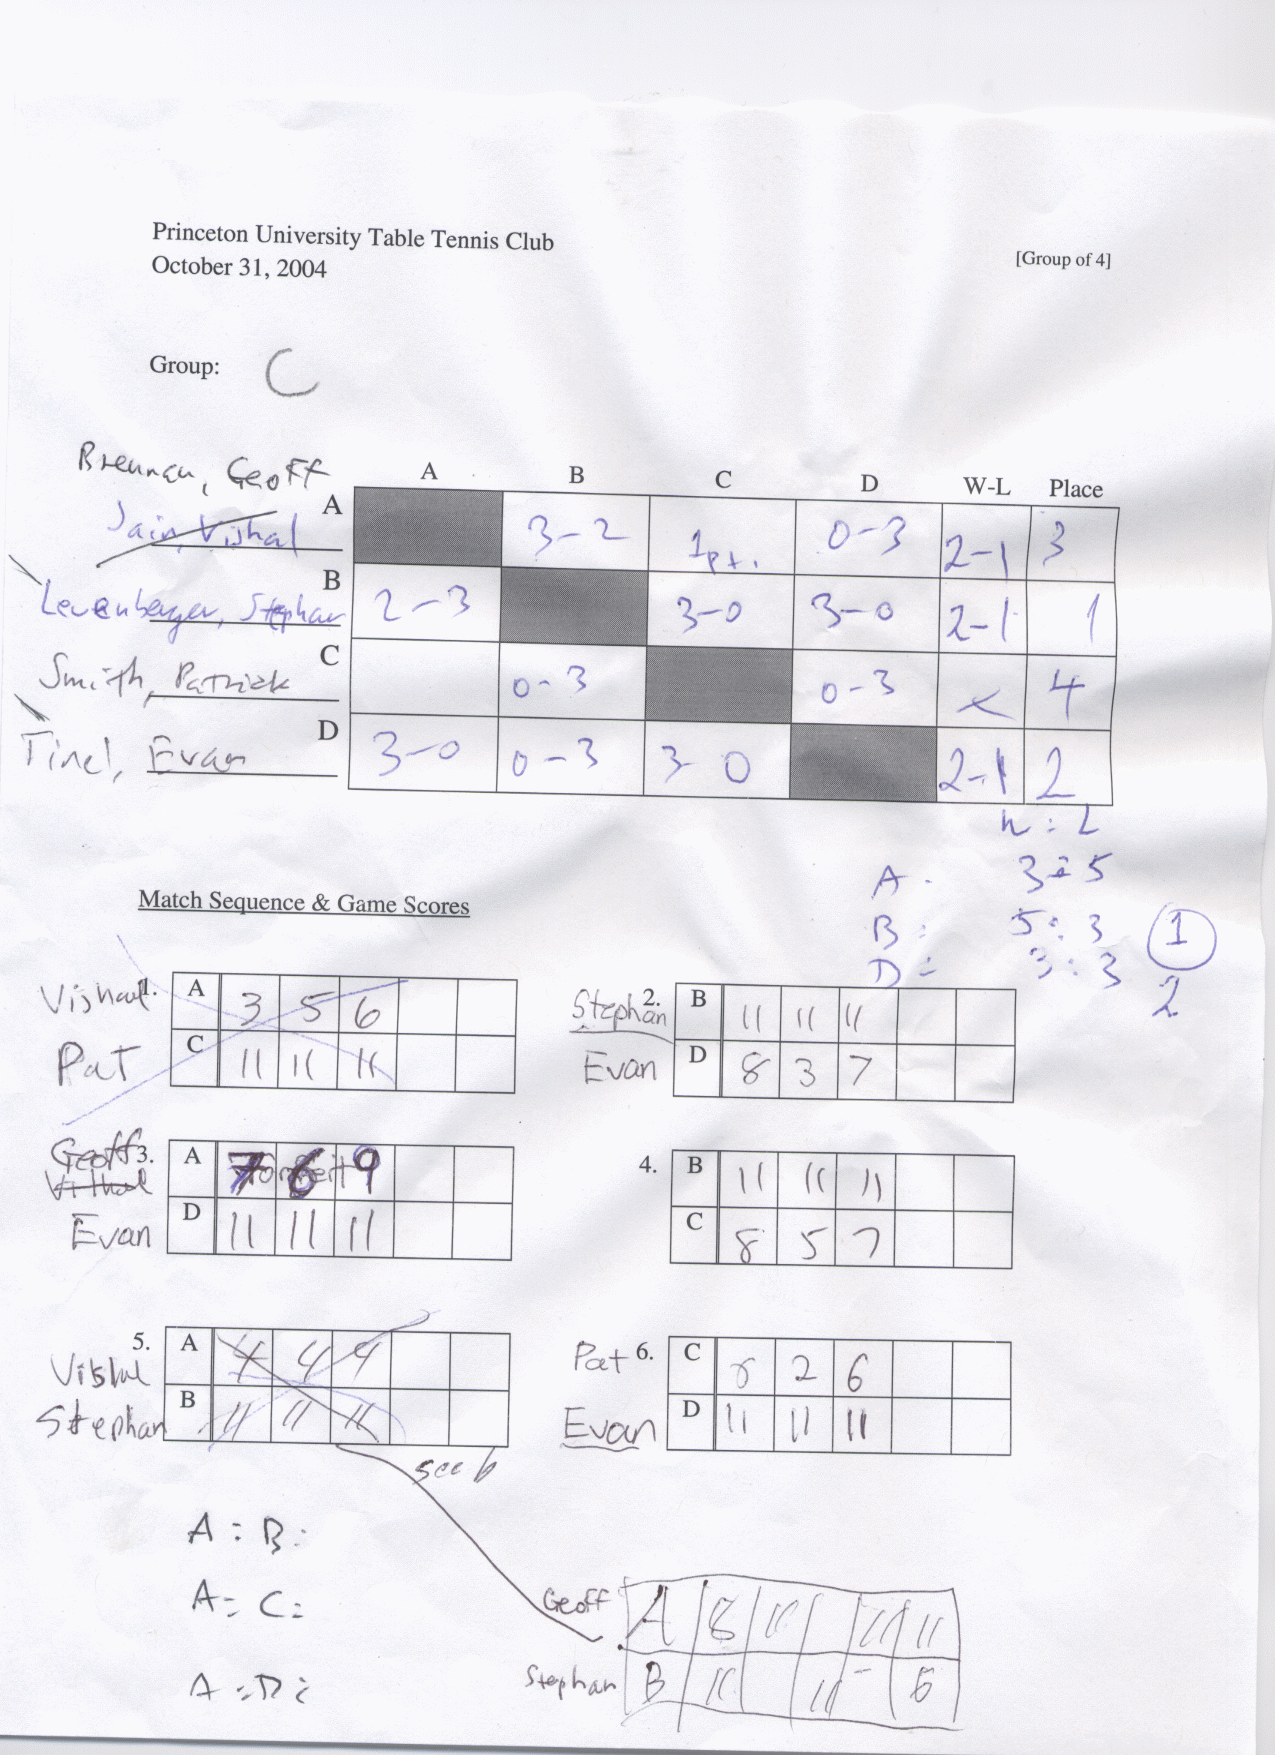 Princeton University Table Tennis Club
October 31, 2004
[Group of 4]
Group: C
Brennan, Geoff
A B C D W-L Place
Jain, Vishal A 3-2 1pt. 0-3 2-1 3
Leuenberger, Stephan B 2-3 3-0 3-0 2-1 1
Smith, Patrick C 0-3 0-3 4
Tinel, Evan D 3-0 0-3 3 0 2-1 2
W : L
A - 3:5
B : 5:3 1
D : 3:3 2
Match Sequence & Game Scores
Vishal 1. A 3 5 6
Pat C 11 11 11
Stephan 2. B 11 11 11
Evan D 8 3 7
Geoff 3. A 7 6 9
Vishal
Evan D 11 11 11
4. B 11 11 11
C 8 5 7
5. A 4 4 4
Vishal
Stephan B 11 11 11
Pat 6. C 8 2 6
Evan D 11 11 11
see b
A : B :
A : C :
A : D :
Geoff A 8 11 11 11
Stephan B 11 11 - 6